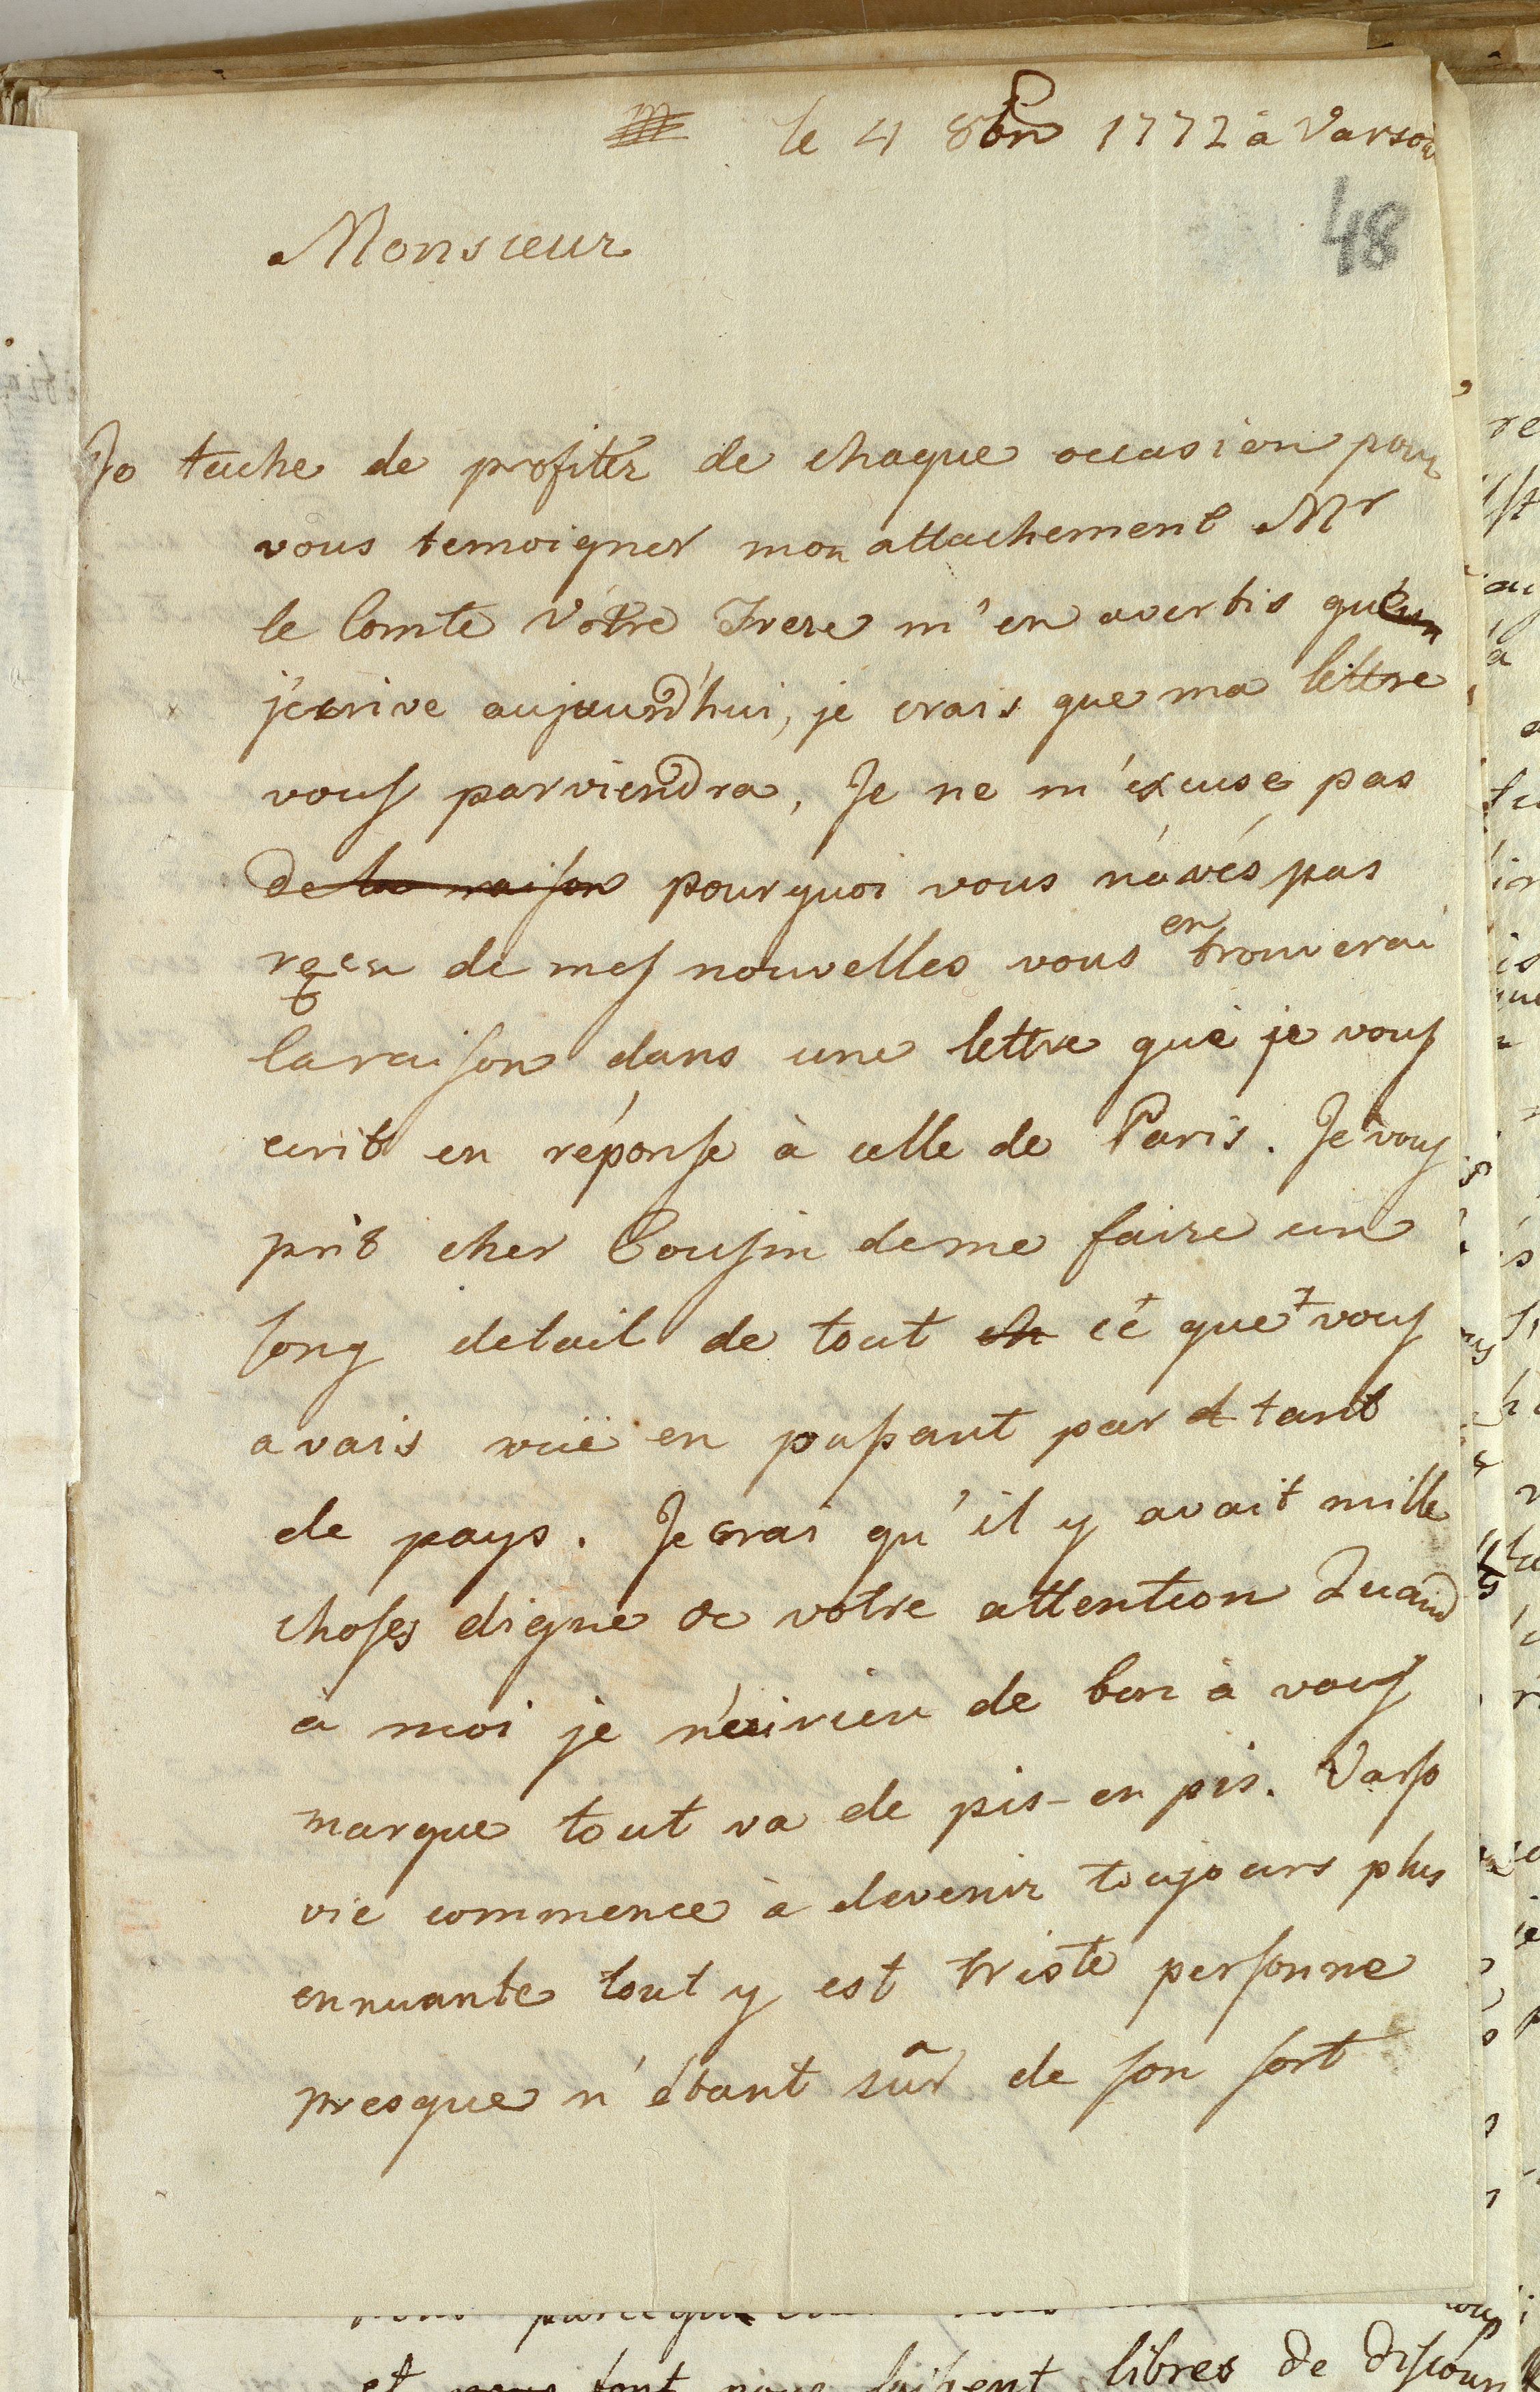 le 4 8br 1772 à Varso
48
Monsieur
Je tache de profiter de chaque occasion pour
vous temoigner mon attachement Mr
le Comte Vôtre Frere m'en avertis qu'en
j'ecrive aujourd'hui, je crais que ma lettre
vous parviendra, Je ne m'excuse pas
de la raison pourquoi vous n'avés pas
reçeu de mes nouvelles vous en trouverai
la raison dans une lettre que je vous
ecrit en réponse à celle de Paris. Je vous
prit cher Cousin de me faire un
long detail de tout ch cé que vous
avais vuë en passant par d tant
de pays. Je crai qu'il y avait mille
choses digne de votre attention Quand
à moi je n'ai rien de bon à vous
marque tout va de pis-en pis. Varso
vie commence à devenir toujours plus
ennuante tout y est triste personne
presque n'étant sûr de son sort
libres de discour